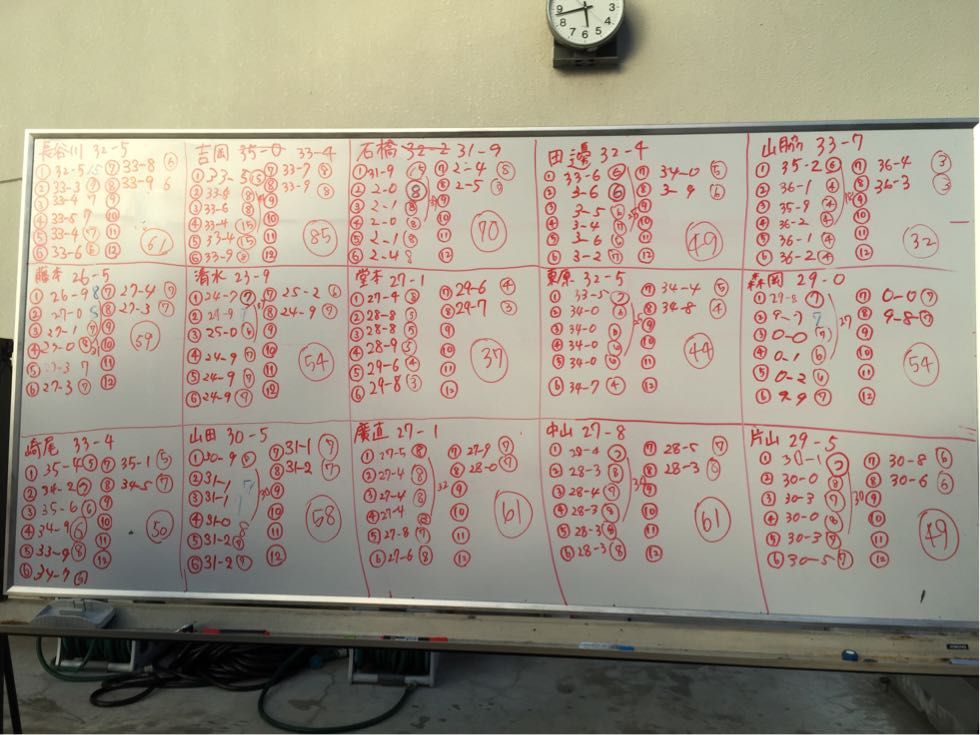 長谷川 32-5
① 32-5 ⑦ 33-8 ⑥
② 33-3 ⑦ ⑧ 33-9 6
③ 33-4 7 ⑨
④ 33-5 7 ⑩
⑤ 33-4 ⑦ ⑪
⑥ 33-6 ⑥ ⑫
61
吉岡 35-0 33-4
① 33-5 ⑮ ⑦ 33-7 ⑧
② 33-8 ⑧ ⑧ 33-9 ⑧
③ 33-6 ⑧ ⑨
④ 33-4 ⑮ ⑩
⑤ 33-4 ⑮ ⑪
⑥ 33-9 ⑧ ⑫
85
石橋 32-2 31-9
① 31-9 ⑦ 2-4 ⑧
② 2-0 ⑧ ⑧ 2-5
③ 2-1 ⑧ ⑨
④ 2-0 ⑧ ⑩
⑤ 2-1 ⑧ ⑪
⑥ 2-4 8 ⑫
70
田邊 32-4
① 33-6 ⑥ ⑦ 34-0 ⑤
② 3-6 ⑥ ⑧ 3-9 ⑥
③ 3-5 ⑥ ⑨
④ 3-4 ⑦ ⑩
⑤ 3-6 ⑥ ⑪
⑥ 3-2 ⑦ ⑫
49
山脇 33-7
① 35-2 ④ ⑦ 36-4 ③
② 36-1 ④ ⑧ 36-3 ③
③ 35-9 ④ ⑨
④ 36-2 ④ ⑩
⑤ 36-1 ④ ⑪
⑥ 36-2 ④ ⑫
32
藤本 26-5
① 26-9 8 ⑦ 27-4 ⑦
② 27-0 8 ⑧ 27-3 ⑦
③ 27-1 ⑦ ⑨
④ 27-0 ⑧ ⑩
⑤ 27-3 7 ⑪
⑥ 27-3 ⑦ ⑫
59
清水 23-9
① 24-7 ⑦ ⑦ 25-2 ⑥
② 24-9 7 ⑧ 24-9 ⑦
③ 25-0 ⑥ ⑨
④ 24-9 ⑦ ⑩
⑤ 24-9 ⑦ ⑪
⑥ 24-9 ⑦ ⑫
54
堂本 27-1
① 27-9 ⑧ ⑦ 29-6 ④
② 28-8 ⑤ ⑧ 29-7 ③
③ 28-8 ⑤ ⑨
④ 28-9 ⑤ ⑩
⑤ 29-6 ④ ⑪
⑥ 29-8 ③ ⑫
37
東原 32-5
① 33-5 ⑦ ⑦ 34-4 ⑤
② 34-0 ⑥ ⑧ 34-8 ④
③ 34-0 ⑥ ⑨
④ 34-0 ⑥ ⑩
⑤ 34-0 ⑥ ⑪
⑥ 34-7 ④ ⑫
44
森岡 29-0
① 29-8 ⑦ ⑦ 0-0 ⑦
② 9-7 7 ⑧ 9-8 ⑦
③ 0-0 ⑦ 27 ⑨
④ 0-1 ⑥ ⑩
⑤ 0-2 ⑥ ⑪
⑥ 9-9 ⑦ ⑫
54
崎尾 33-4
① 35-4 ⑤ ⑦ 35-1 ⑤
② 34-2 ⑦ ⑧ 34-5 ⑦
③ 35-6 ⑥ ⑨
④ 34-9 ⑥ ⑩
⑤ 33-9 ⑧ ⑪
⑥ 34-7
50
山田 30-5
① 30-9 ⑧ ⑦ 31-1 ⑦
② 31-1 ⑧ 31-2 ⑦
③ 31-1 30 ⑨
④ 31-0 8 ⑩
⑤ 31-2 ⑦ ⑪
⑥ 31-2 ⑦ ⑫
58
廣直 27-1
① 27-5 ⑧ ⑦ 27-9 ⑦
② 27-4 ⑧ ⑧ 28-0 ⑦
③ 27-4 ⑧ 32 ⑨
④ 27-4 ⑧ ⑩
⑤ 27-8 ⑦ ⑪
⑥ 27-6 ⑧ ⑫
61
中山 27-8
① 28-4 ⑦ ⑦ 28-5 ⑦
② 28-3 ⑧ ⑧ 28-3
③ 28-4 ⑦ ⑨
④ 28-3 ⑧ ⑩
⑤ 28-3 ⑧ ⑪
⑥ 28-3 ⑧ ⑫
61
片山 29-5
① 31-1 ⑦ 30-8 ⑥
② 30-0 ⑧ ⑧ 30-6 ⑥
③ 30-3 ⑦ 30 ⑨
④ 30-0 ⑧ ⑩
⑤ 30-3 ⑦ ⑪
⑥ 30-5 ⑦ ⑫
49